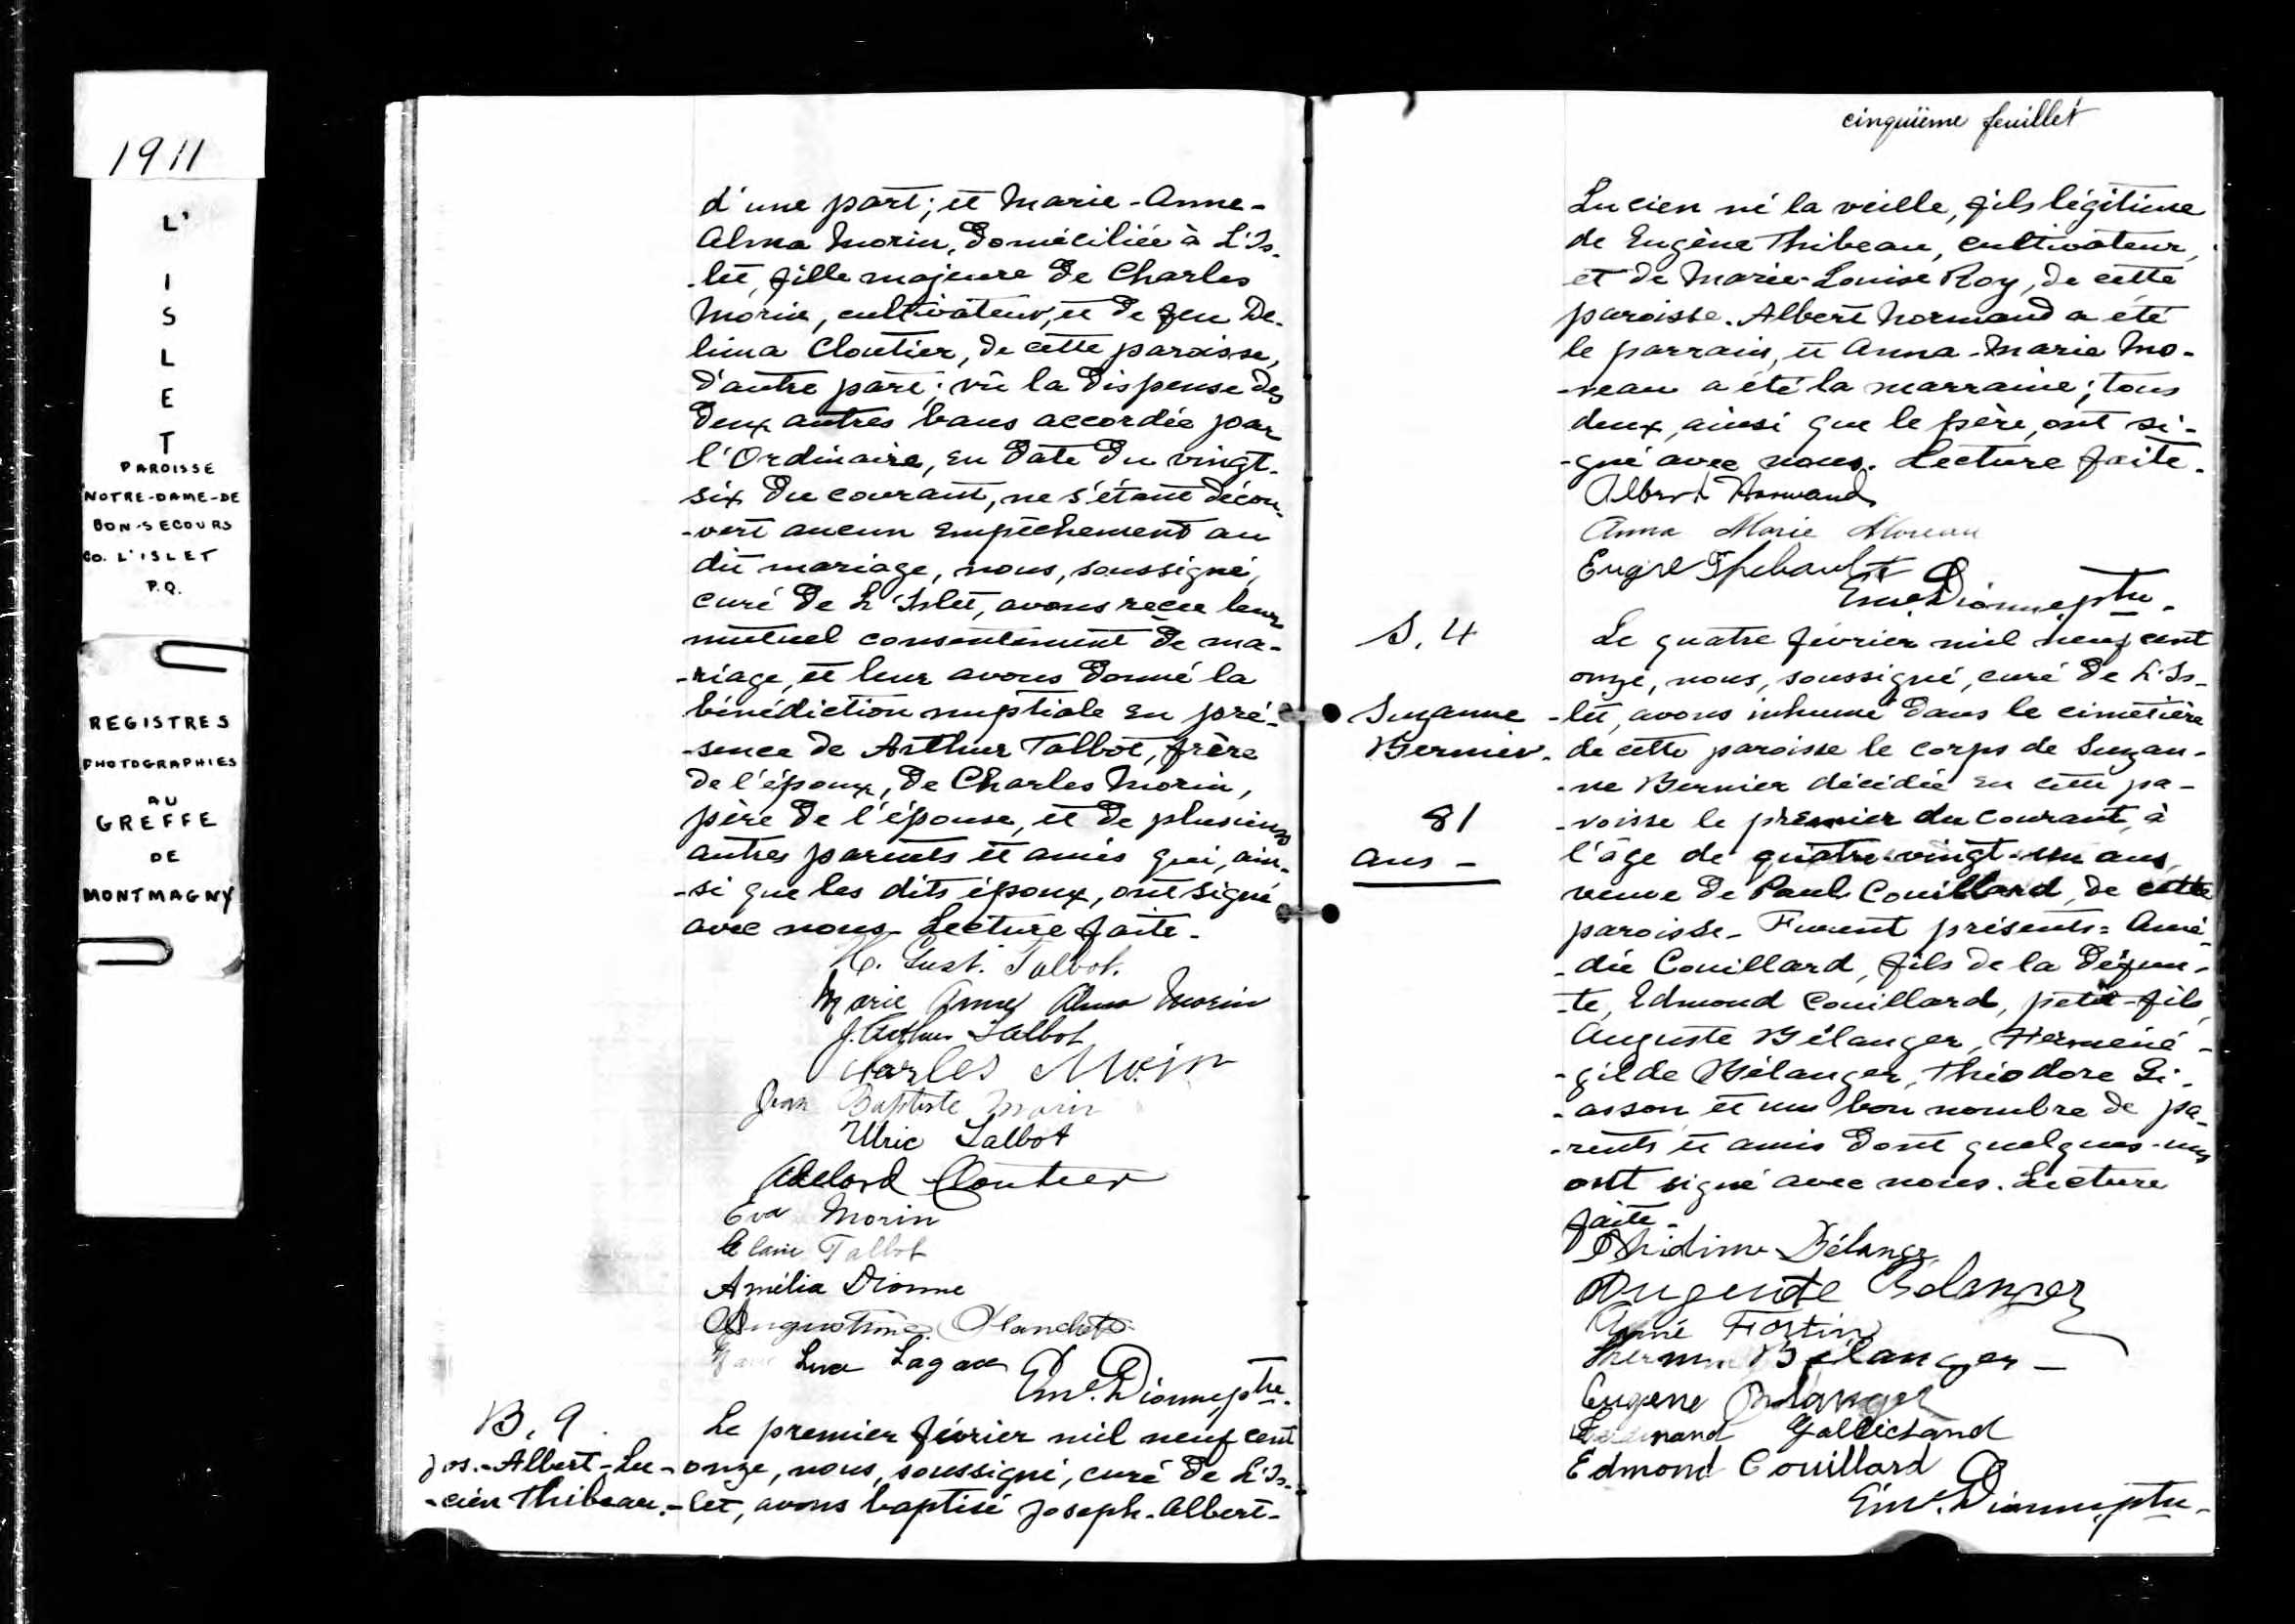 1911
L'
I
S
L
E
T
PAROISSE
NOTRE-DAME-DE
BON-SECOURS
CO. L'ISLET
P.Q.
REGISTRES
PHOTOGRAPHIES
AU
GREFFE
DE
MONTMAGNY
d'une part; et Marie-Anne-
Alma Morin, domiciliée à L'Is-
-let, fille majeure de Charles
Morin, cultivateur, et de feu De-
lima Cloutier, de cette paroisse,
d'autre part; vû la dispense des
deux autres bans accordée par
l'Ordinaire, en date du vingt-
six du courant, ne s'étant décou-
-vert aucun empêchement au
dit mariage, nous, soussigné,
curé de L'Islet, avons reçu leur
mutuel consentement de ma-
-riage, et leur avons donné la
bénédiction nuptiale en pré-
-sence de Arthur Talbot, frère
de l'époux, de Charles Morin,
père de l'épouse, et de plusieurs
autres parents et amis qui, ain-
-si que les dits époux, ont signé
avec nous. Lecture faite.
Talbot.
Marie Anne Alma Morin
J. Arthur Talbot
Charles Morin
Jean Baptiste Morin
Ulric Talbot
Adelard Cloutier
Eva Morin
Talbot
Amélia Dionne
Lagacé
Emd. Dionne, ptre.
B. 9.
Jos.-Albert-Lu-
-cien Thibeau.
Le premier février mil neuf cent
onze, nous, soussigné, curé de L'Is-
-let, avons baptisé Joseph-Albert-
cinquième feuillet
Lucien né la veille, fils légitime
de Eugène Thibeau, cultivateur,
et de Marie-Louise Roy, de cette
paroisse. Albert Normand a été
le parrain, et Anna-Marie Mo-
-reau a été la marraine; tous
deux, ainsi que le père, ont si-
-gné avec nous. Lecture faite.
Albert Normand
Anna Marie Moreau
Thibault
Emd. Dionne, ptre.
S. 4
Suzanne
Bernier.
81
ans -
Le quatre février mil neuf cent
onze, nous, soussigné, curé de L'Is-
-let, avons inhumé dans le cimetière
de cette paroisse le corps de Suzan-
-ne Bernier décédée en cette pa-
-roisse le premier du courant, à
l'âge de quatre-vingt-un ans,
veuve de Paul Couillard, de cette
paroisse. Furent présents: Amé-
-dée Couillard, fils de la défun-
-te, Edmond Couillard, petit-fils,
Auguste Bélanger, Herméné-
-gilde Bélanger, Théodore Gi-
-asson et un bon nombre de pa-
-rents et amis dont quelques-uns
ont signé avec nous. Lecture
faite.
Bélanger
Auguste Belanger
Fortin
Bélanger
Eugene Belanger
Gallichand
Edmond Couillard
Emd. Dionne, ptre.